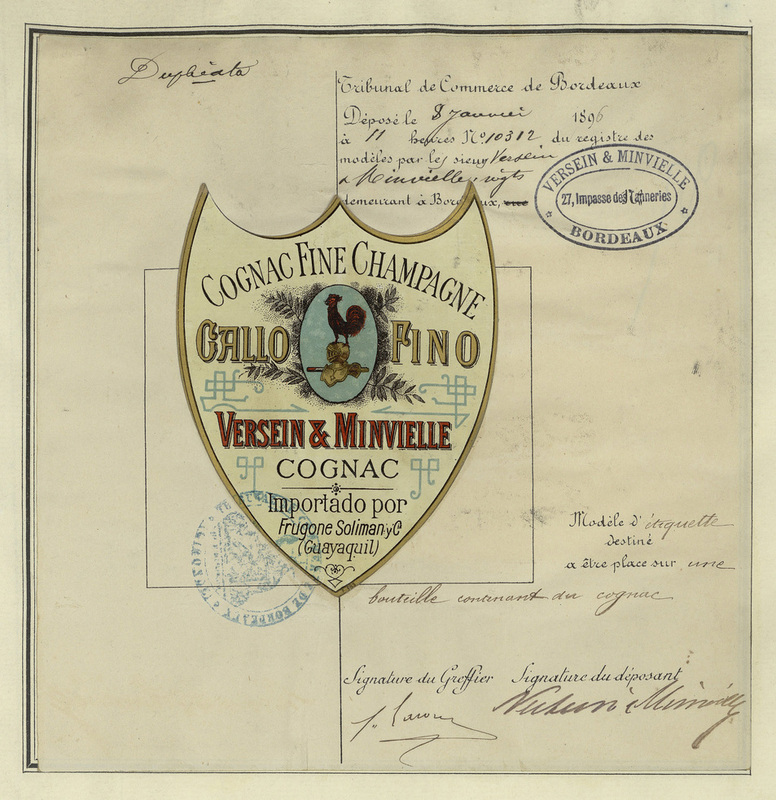 Duplicata
Tribunal de Commerce de Bordeaux
Déposé le 8 Janvier 1896
à 11 heures No 10312 du registre des
modèles par les sieurs Versein
& Minvielle, ngts
demeurant à Bordeaux, rue
VERSEIN & MINVIELLE
27, Impasse des Tanneries
BORDEAUX
COGNAC FINE CHAMPAGNE
GALLO FINO
VERSEIN & MINVIELLE
COGNAC
Importado por
Frugone Soliman y Ca
(Guayaquil)
DE BORDEAUX
Modèle d'étiquette
destiné
a être place sur une
bouteille contenant du cognac
Signature du Greffier Signature du déposant
Versein & Minvielle